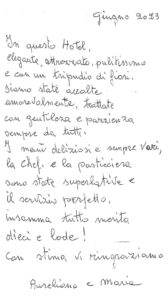 giugno 2023
In questo Hotel,
elegante, attrezzato, pulitissimo
e con un tripudio di fiori.
siamo state accolte
amorevolmente, trattate
con gentilezza e pazienza
sempre da tutti.
I menù deliziosi e sempre vari,
la Chef. e la pasticciera
sono state superlative e
il servizio perfetto,
insomma tutto merita
dieci e lode!
Con stima vi ringraziamo
Aureliana e Maria